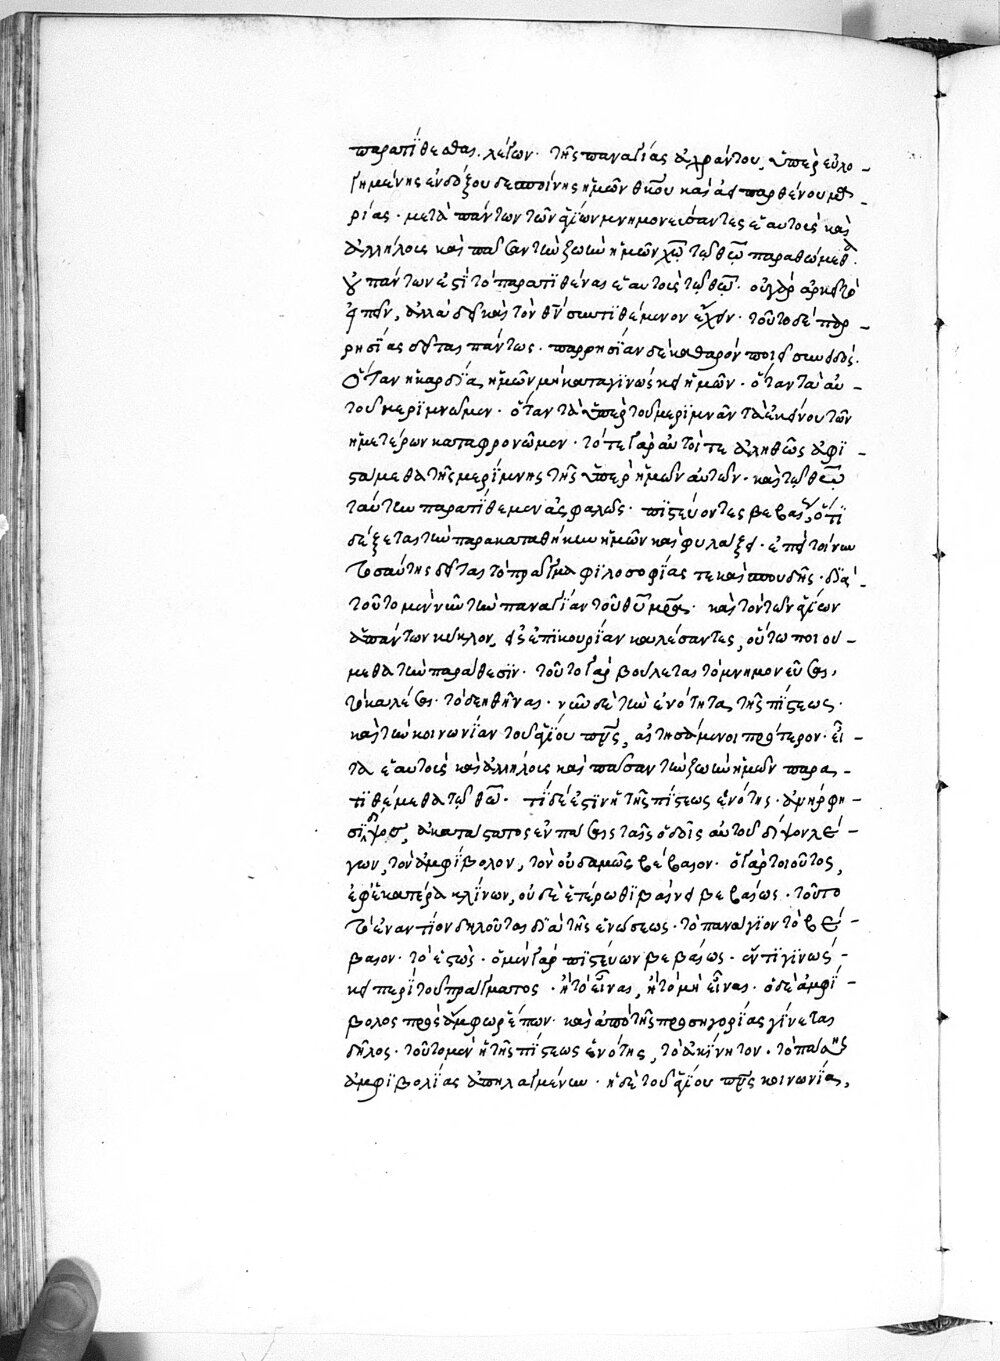 παρατίθεσθαι. λέγων· τῆς παναγίας ἀχράντου, ὑπερευλο-
γημένης ἐνδόξου δεσποίνης ἡμῶν θκου καὶ ἀειπαρθένου μ-
ρίας· μετὰ πάντων τῶν ἁγίων μνημονεύσαντες ἑαυτοὺς καὶ
ἀλλήλους καὶ πᾶσαν τὴν ζωὴν ἡμῶν χω τῶ θω παραθώμεθα·
οὐ πάντων ἐστὶ τὸ παρατιθέναι ἑαυτοὺς τῶ θω· οὐ γὰρ ἀρκεῖ τὸ
εἰπεῖν, ἀλλὰ δεῖ καὶ τὸν θν συντιθέμενον ἔχειν· τοῦτο δὲ παρ-
ρησίας δεῖται πάντως· παρρησίαν δὲ καθαρὸν ποιεῖ συνειδός·
ὅταν ἡ καρδία ἡμῶν μὴ καταγινώσκει ἡμῶν· ὅταν τὰ αὐ-
τοῦ μεριμνῶμεν· ὅταν τὰ ὑπὲρ τοῦ μεριμνᾶν τὰ ἐκείνου τῶν
ἡμετέρων καταφρονῶμεν· τότε γὰρ αὐτοί τε ἀληθῶς ἀφι-
στάμεθα τῆς μερίμνης τῆς ὑπὲρ ἡμῶν αὐτῶν· καὶ τῶ θω
ταύτην παρατίθεμεν ἀσφαλῶς· πιστεύοντες βεβαίως, ὅτι
δέξεται τὴν παρακαταθήκην ἡμῶν καὶ φυλάξει· ἐπεὶ τοίνυν
τοσαύτης δεῖται τὸ πρᾶγμα φιλοσοφίας τε καὶ σπουδῆς· διὰ
τοῦτο μὲν νῦν τὴν παναγίαν τοῦ θυ μρα· καὶ τὸν τῶν ἁγίων
ἁπάντων κύκλον, εἰς ἐπικουρίαν καλέσαντες, οὕτω ποιού-
μεθα τὴν παράθεσιν· τοῦτο γὰρ βούλεται τὸ μνημονεῦσαι,
τὸ καλέσαι· τὸ δεηθῆναι· νῦν δὲ τὴν ἑνότητα τῆς πίστεως·
καὶ τὴν κοινωνίαν τοῦ ἁγίου πνς, αἰτησάμενοι πρότερον· εἶ-
τα ἑαυτοὺς καὶ ἀλλήλους καὶ πᾶσαν τὴν ζωὴν ἡμῶν παρα-
τιθέμεθα τῶ θω· τί δέ ἐστιν ἡ τῆς πίστεως ἑνότης· ἀνήρ φη-
σι δίψυχος, ἀκατάστατος ἐν πάσαις ταῖς ὁδοῖς αὐτοῦ δίψυχον λέ-
γων, τὸν ἀμφίβολον, τὸν οὐδαμῶς βέβαιον· ὁ γὰρ τοιοῦτος,
ἐφ' ἑκάτερα κλίνων, οὐδὲ ἑτέρωθι βαίνει βεβαίως· τοῦτο
τὸ ἐναντίον δηλοῦται διὰ τῆς ἑνώσεως· τὸ πανάγιον τὸ βέ-
βαιον· τὸ ἑστὼς· ὁ μὲν γὰρ πιστεύων βεβαίως· ἓν τι γινώσ-
κει περὶ τοῦ πράγματος· ἢ τὸ εἶναι, ἢ τὸ μὴ εἶναι· ὁ δὲ ἀμφί-
βολος πρὸς ἄμφω ῥέπων· καὶ ἀπὸ τῆς προσηγορίας γίνεται
δῆλος· τοῦτο μὲν ἡ τῆς πίστεως ἑνότης, τὸ ἀκίνητον· τὸ πάσης
ἀμφιβολίας ἀπηλαγμένον· ἡ δὲ τοῦ ἁγίου πνς κοινωνία,